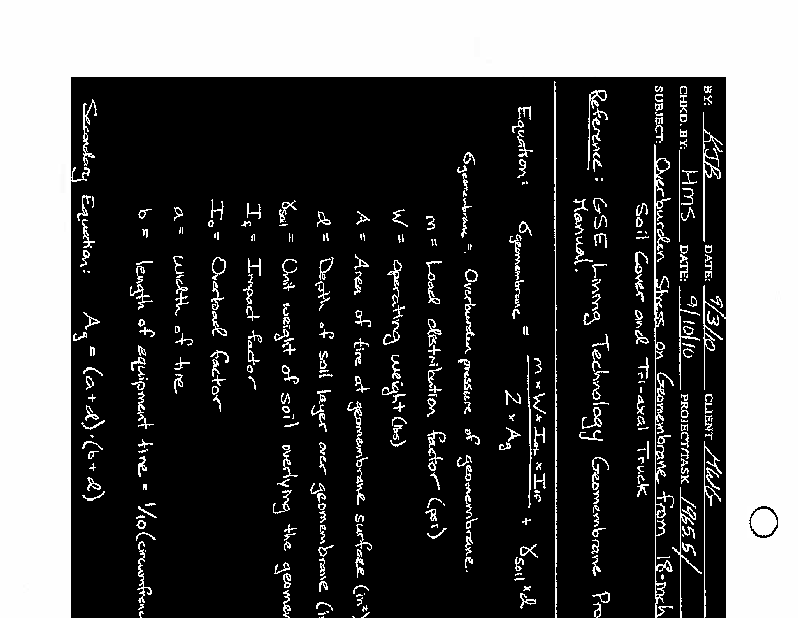 BY: KJB DATE: 9/3/10 CLIENT
CHKD. BY: HMS DATE: 9/10/10 PROJECT/TASK 1865.5/
SUBJECT: Overburden Stress on Geomembrane from 18-inch
Soil Cover and Tri-axal Truck
Reference: GSE Lining Technology Geomembrane Pro
Manual.
Equation: σgeomembrane = m × W × IoL × Im / 2 × Ag + γsoil × d
σgeomembrane = Overburden pressure of geomembrane.
m = Load distribution factor (psi)
W = operating weight (lbs)
A = Area of tire at geomembrane surface (in²)
d = Depth of soil layer over geomembrane (in
γsoil = Unit weight of soil overlying the geomem
I = Impact factor
Io = Overload factor
a = width of tire
b = length of equipment tire = 1/10 (circumferenc
Secondary Equation: Ag = (a+d)·(b+d)